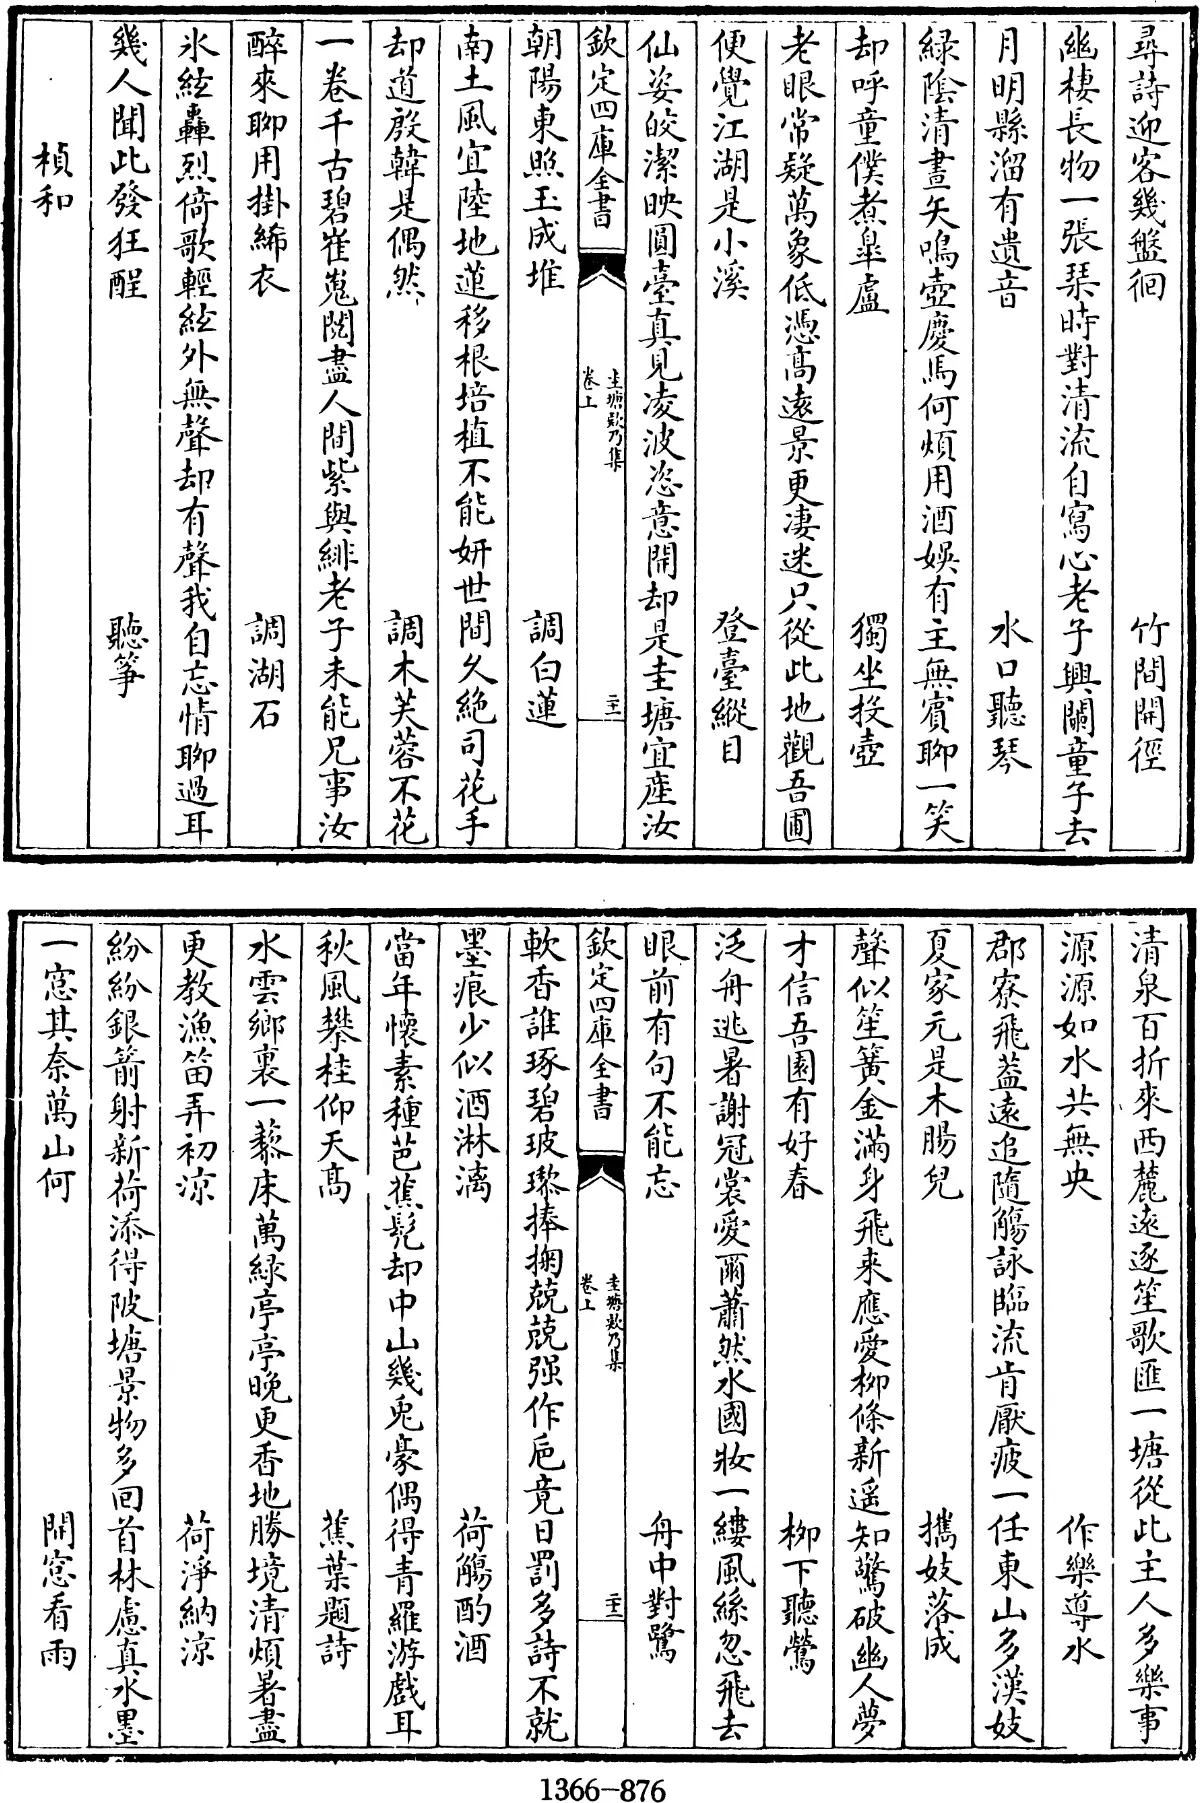 尋詩迎客幾盤徊　竹間開徑
幽棲長物一張琹時對清流自寫心老子興闌童子去
月明縣溜有遺音　水口聽琴
綠陰清晝矢鳴壺慶馬何煩用酒娛有主無賓聊一笑
却呼童僕煮臯盧　獨坐投壺
老眼常疑萬象低憑髙遠景更凄迷只從此地觀吾圃
便覺江湖是小溪　登臺縱目
仙姿皎潔映圓臺真見凌波恣意開却是圭塘宜產汝
欽定四庫全書　圭塘欸乃集　卷上　二十一
朝陽東照玉成堆　調白蓮
南土風宜陸地蓮移根培植不能妍世間久絶司花手
却道殷韓是偶然　調木芙蓉不花
一卷千古碧崔嵬閱盡人間紫與緋老子未能兄事汝
醉來聊用掛絺衣　調湖石
氷絃轟烈倚歌輕絃外無聲却有聲我自忘情聊過耳
幾人聞此發狂酲　聽箏
楨和
清泉百折來西麓遠逐笙歌匯一塘從此主人多樂事
源源如水共無央　作樂導水
郡寮飛蓋遠追隨觴詠臨流肯厭疲一任東山多漢妓
夏家元是木腸兒　攜妓落成
聲似笙簧金滿身飛來應愛栁條新遥知驚破幽人夢
才信吾園有好春　栁下聽鶯
泛舟逃暑謝冠裳愛爾蕭然水國妝一縷風絲忽飛去
眼前有句不能忘　舟中對鷺
欽定四庫全書　圭塘欸乃集　卷上　二十二
軟香誰琢碧玻瓈捧掬兢兢强作巵竟日罰多詩不就
墨痕少似酒淋漓　荷觴酌酒
當年懷素種芭蕉髡却中山幾兎豪偶得青羅游戲耳
秋風攀桂仰天髙　蕉葉題詩
水雲鄉裏一藜床萬綠亭亭晚更香地勝境清煩暑盡
更教漁笛弄初凉　荷淨納凉
紛紛銀箭射新荷添得陂塘景物多回首林慮真水墨
一窓其奈萬山何　開窓看雨
1366-876